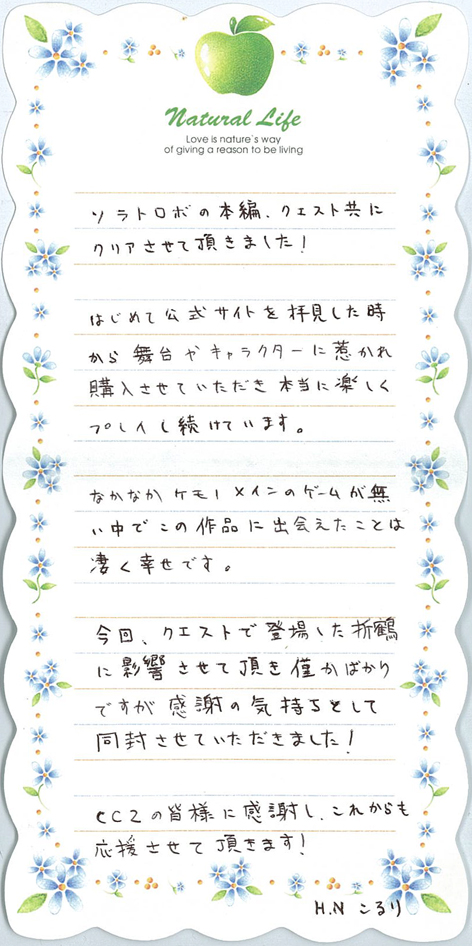 Natural Life
Love is nature`s way
of giving a reason to be living
ソラトロボの本編、クエスト共に
クリアさせて頂きました!
はじめて公式サイトを拝見した時
から舞台やキャラクターに惹かれ
購入させていただき本当に楽しく
プレイし続けています。
なかなかケモノメインのゲームが無
い中でこの作品に出会えたことは
凄く幸せです。
今回、クエストで登場した折鶴
に影響させて頂き僅かばかり
ですが感謝の気持ちとして
同封させていただきました!
CC2の皆様に感謝し、これからも
応援させて頂きます!
H.N こるり